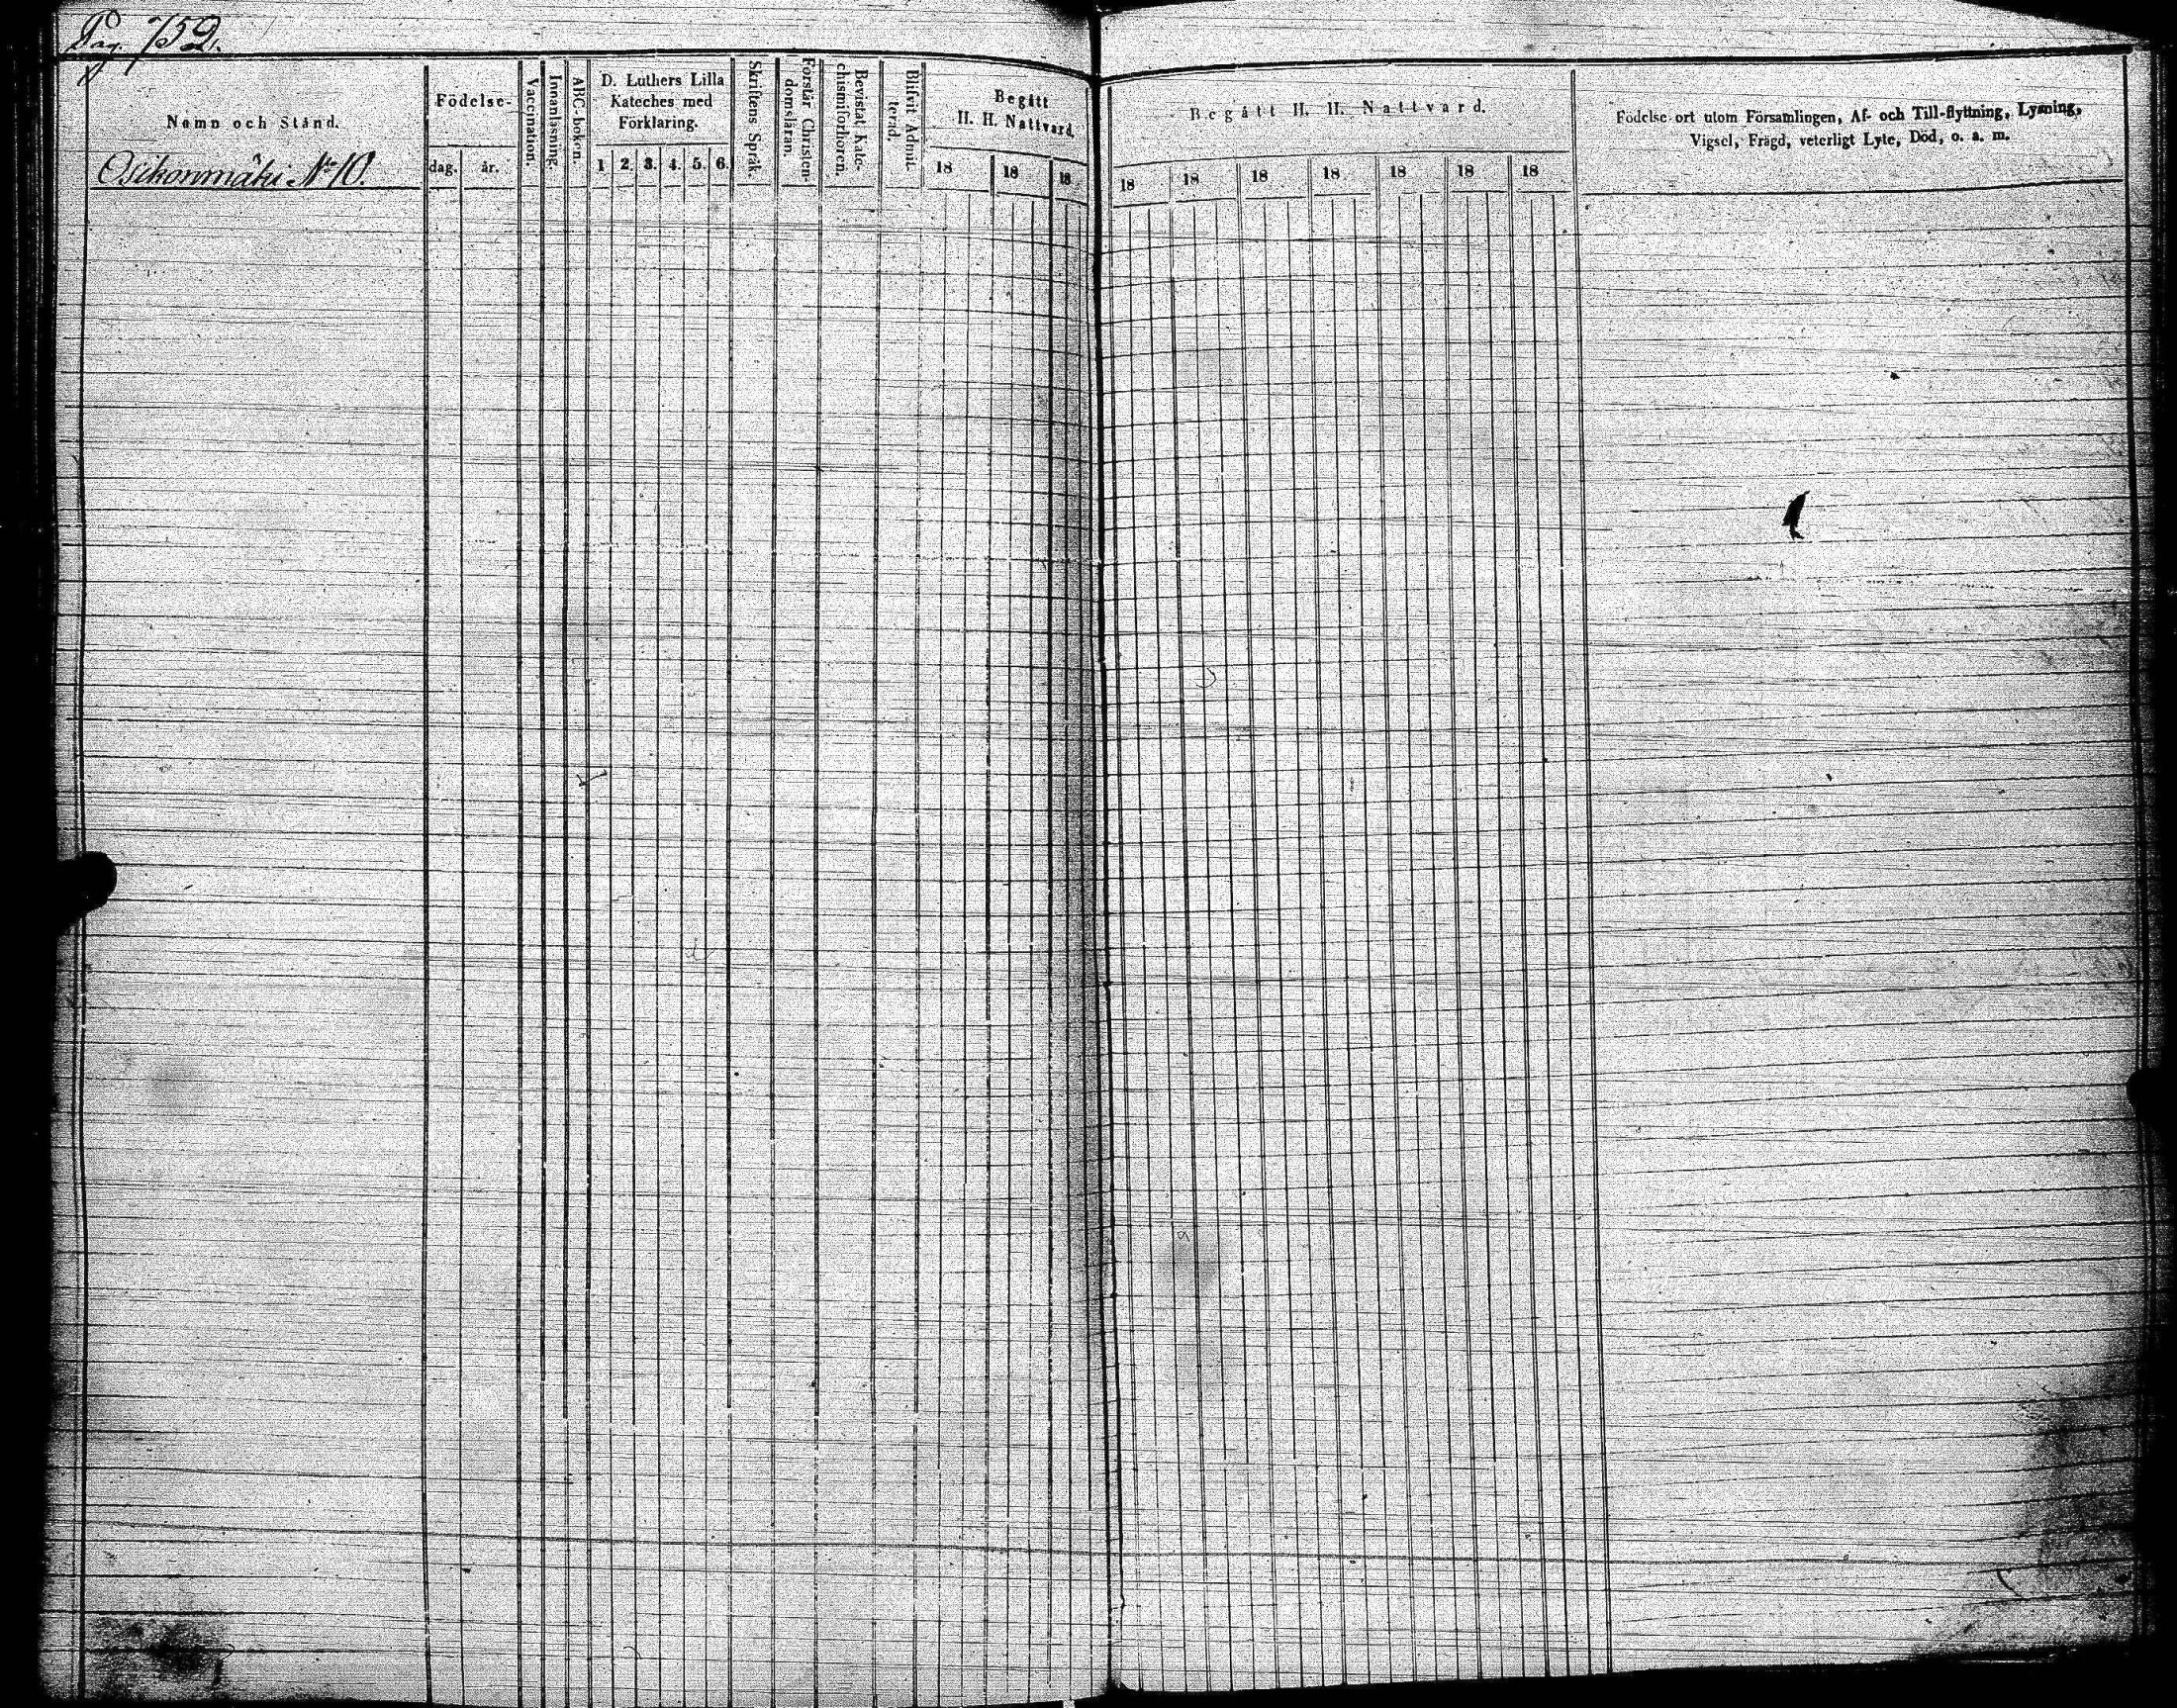 Pag. 752.
Namn och Stånd.
Osikonmäki No 10.
Födelse-
dag.
år.
Vaccination.
Innanläsning.
ABC-boken.
D. Luthers Lilla
Kateches med
Förklaring.
1 2. 3. 4. 5. 6.
Skriftens Språk.
Förstår Christen-
domsläran.
Bevistat Kate-
chismiförhören.
Blifvit Admit-
terad.
Begått
H. H. Nattvard.
18 18 18
Begått H. H. Nattvard.
18 18 18 18 18 18 18
Födelse-ort utom Församlingen, Af- och Till-flyttning, Lysning,
Vigsel, Frägd, veterligt Lyte, Död, o. a. m.